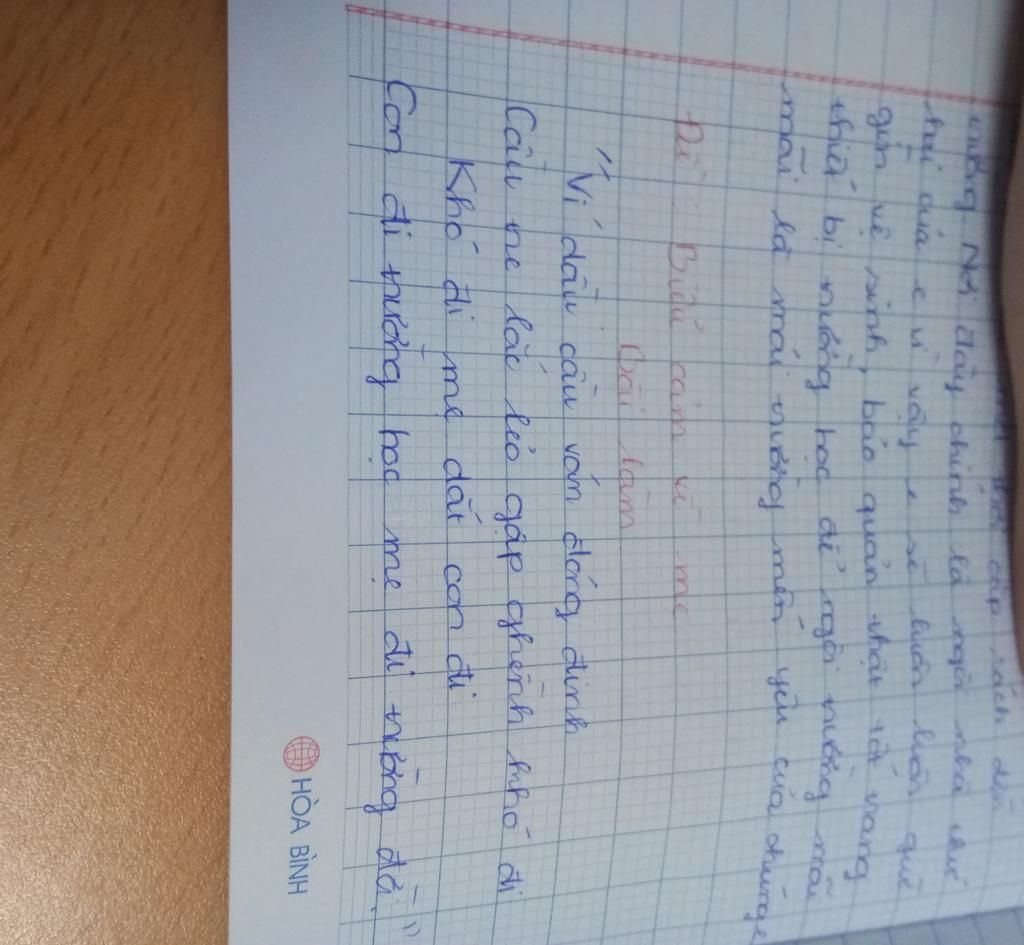 cắp sách đến
trường. Nơi đây chính là ngôi nhà thứ
hai của e vì vậy e sẽ luôn luôn giữ
gìn vệ sinh, bảo quản thật tốt trang
thiết bị trường học để ngôi trường mãi
mãi là mái trường mến yêu của chúng e
Đề: Biểu cảm về mẹ
Bài làm
"Ví dầu cầu ván đóng đinh
Cầu tre lắc lẻo gập ghềnh khó đi
Khó đi mẹ dắt con đi
Con đi trường học mẹ đi trường đời."
HÒA BÌNH